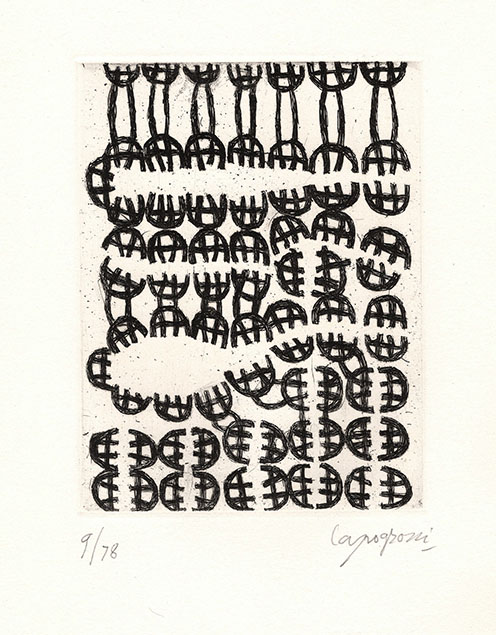 9/78
Capogrossi